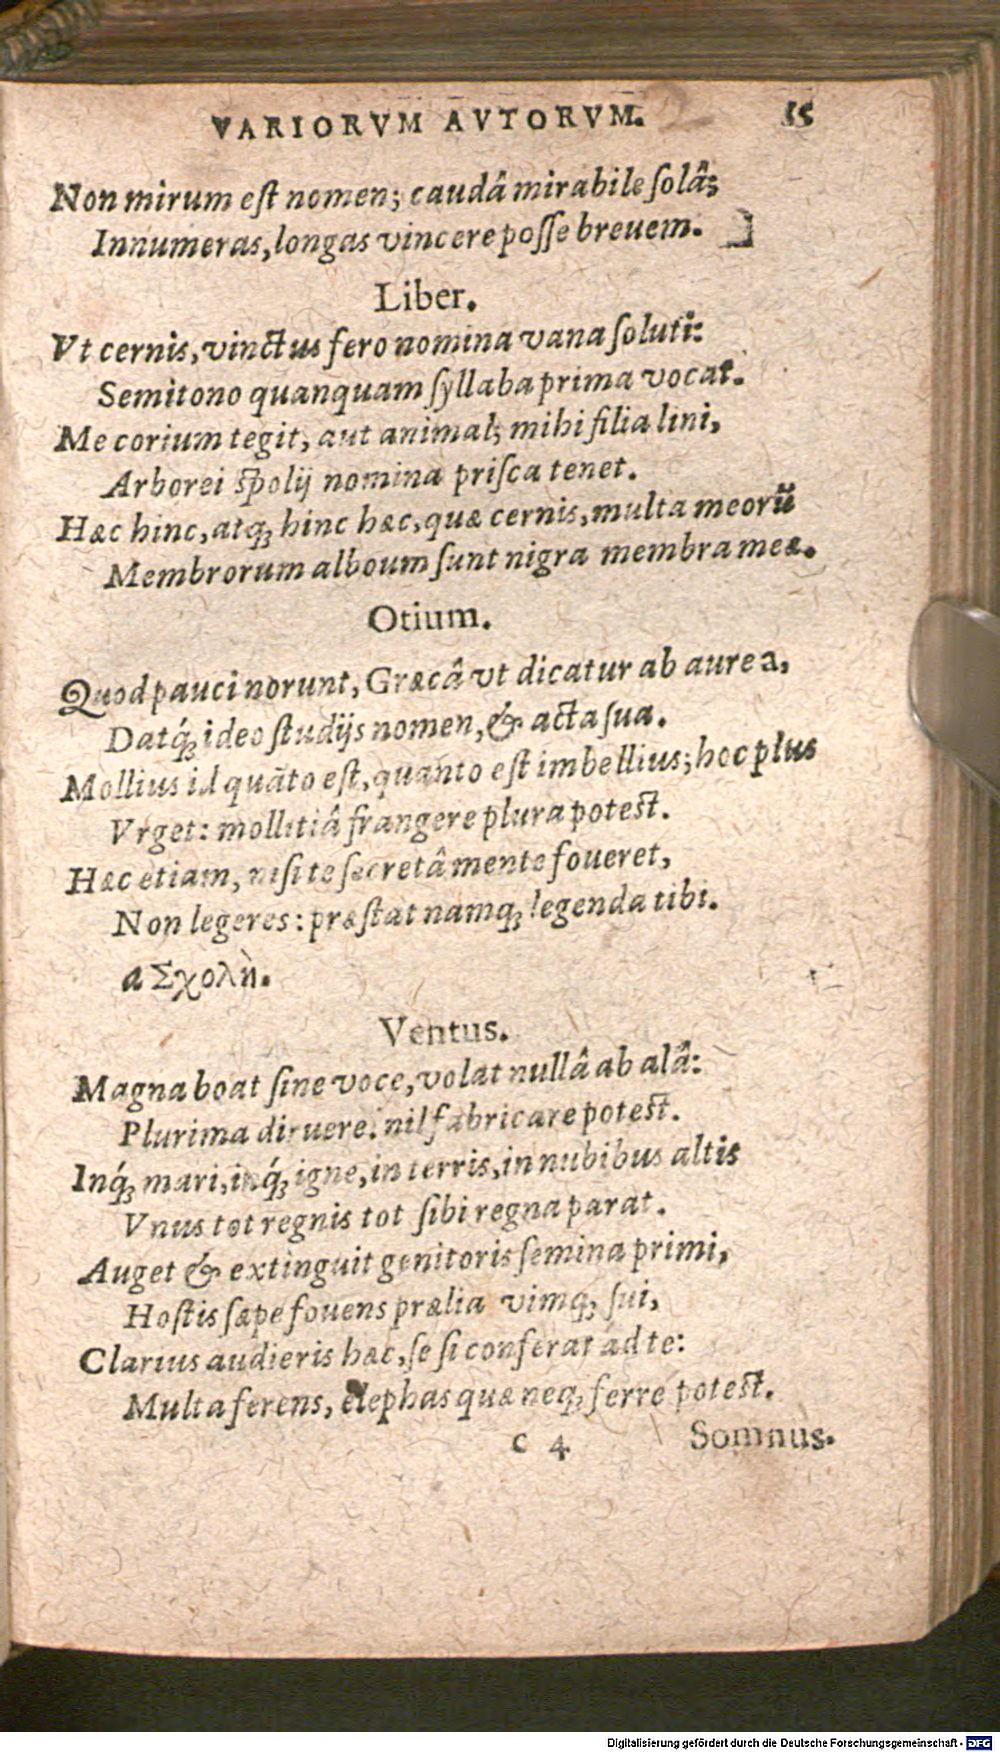 VARIORVM AVTORVM. 15
Non mirum eſt nomen; caudâ mirabile ſolâ;
Innumeras, longas vincere poſſe breuem.
Liber.
Vt cernis, vinctus fero nomina vana ſoluti:
Semitono quanquam ſyllaba prima vocat.
Me corium tegit, aut animal; mihi filia lini,
Arborei ſpolij nomina priſca tenet.
Hæc hinc, atq; hinc hæc, quæ cernis, multa meorũ
Membrorum alboum ſunt nigra membra meæ.
Otium.
Quod pauci norunt, Græcâ vt dicatur ab aure a,
Datq́; ideo ſtudijs nomen, & acta ſua.
Mollius id quãto eſt, quanto eſt imbellius; hoc plus
Vrget: mollitiâ frangere plura poteſt.
Hæc etiam, niſi te ſecretâ mente foueret,
Non legeres: præſtat namq; legenda tibi.
a Σχολὴ.
Ventus.
Magna boat ſine voce, volat nullâ ab alâ:
Plurima diruere: nil fabricare poteſt.
Inq́; mari, inq́; igne, in terris, in nubibus altis
Vnus tot regnis tot ſibi regna parat.
Auget & extinguit genitoris ſemina primi,
Hoſtis ſæpe fouens prælia vimq; ſui,
Clarius audieris hæc, ſe ſi conferat ad te:
Multa ferens, elephas quæ neq; ferre poteſt.
c 4 Somnus.
Digitalisierung gefördert durch die Deutsche Forschungsgemeinschaft - DFG